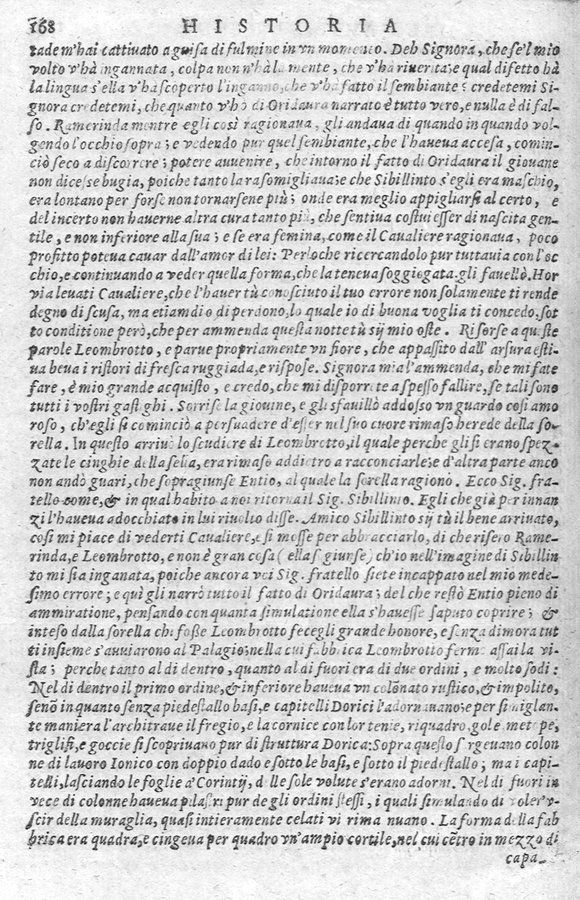 168 HISTORIA
tade m'hai cattivato a guisa di fulmine in vn momento. Deh Signora, che se'l mio
volto v'hà ingannata, colpa non n'hà la mente, che v'hà riuerita; e qual difetto hà
la lingua s'ella v'hà scoperto l'inganno, che v'hà fatto il sembiante: credetemi Si-
gnora credetemi, che quanto v'hò di Oridaura narrato è tutto vero, e nulla è di fal-
so. Ramerinda mentre egli così ragionaua, gli andaua di quando in quando vol-
gendo l'occhio sopra; e vedendo pur quel sembiante, che l'haueua accesa, comin-
ciò seco a discorrere; potere auuenire, che intorno il fatto di Oridaura il giouane
non dicesse bugia, poiche tanto la rasomigliaua; e che Sibillinto s'egli era maschio,
era lontano per forse non tornarsene più; onde era meglio appigliarsi al certo, e
del incerto non hauerne altra cura tanto più, che sentiua costui esser di nascita gen-
tile, e non inferiore alla sua; e se era femina, come il Caualiere ragionaua, poco
profitto poteua cauar dall'amor di lei: Perloche ricercandolo pur tuttauia con l'oc
chio, e continuando a veder quella forma, che la teneua soggiogata. gli fauellò. Hor
via leuati Caualiere, che l'hauer tù conosciuto il tuo errore non solamente ti rende
degno di scusa, ma etiamdio di perdono, lo quale io di buona voglia ti concedo, sot
to conditione però, che per ammenda questa notte tù sij mio oste. Risorse a queste
parole Leombrotto, e parue propriamente vn fiore, che appassito dall'arsura esti-
ua beua i ristori di fresca ruggiada, e rispose. Signora mia l'ammenda, che mi fate
fare, è mio grande acquisto, e credo, che mi disporrete a spesso fallire, se tali sono
tutti i vostri gastighi. Sorrise la giouine, e gli sfauillò addosso vn guardo così amo
roso, ch'egli si cominciò a persuadere d'esser nel suo cuore rimaso herede della so-
rella. In questo arriuò lo scudiere di Leombrotto, il quale perche gli si erano spez-
zate le cinghie della sella, era rimaso addietro a racconciarle; e d'altra parte anco
non andò guari, che sopragiunse Entio, al quale la sorella ragionò. Ecco Sig. fra-
tello come, & in qual habito a noi ritorna il Sig. Sibillinto. Egli che già per innan
zi l'haueua adocchiato in lui riuolto disse. Amico Sibillinto sij tù il bene arriuato,
così mi piace di vederti Caualiere, e si mosse per abbracciarlo, di che risero Rame-
rinda, e Leombrotto, e non è gran cosa (ella sogiunse) ch'io nell'imagine di Sibillin
to mi sia inganata, poiche ancora voi Sig. fratello siete incappato nel mio mede-
simo errore; e quì gli narrò tutto il fatto di Oridaura; del che restò Entio pieno di
ammiratione, pensando con quanta simulatione ella s'hauesse saputo coprire; &
inteso dalla sorella chi fosse Leombrotto fecegli grande honore, e senza dimora tut
ti insieme s'auuiarono al Palagio; nella cui fabbrica Leombrotto fermò assai la vi-
sta; perche tanto al di dentro, quanto al di fuori era di due ordini, e molto sodi:
Nel di dentro il primo ordine, & inferiore haueua vn colõnato rustico, & impolito,
senõ in quanto senza piedestallo basi, e capitelli Dorici l'adornauano; e per simiglan-
te maniera l'architraue il fregio, e la cornice con lor tenie, riquadro, gole metope,
triglifi, e goccie si scopriuano pur di struttura Dorica: Sopra questo sorgeuano colon
ne di lauoro Ionico con doppio dado e sotto le basi, e sotto il piedestallo; ma i capi-
telli, lasciando le foglie a' Corintij, delle sole volute s'erano adorni. Nel di fuori in
vece di colonne haueua pilastri pur degli ordini stessi, i quali simulando di voler v-
scir della muraglia, quasi intieramente celati vi rimanuano. La forma della fab
brica era quadra, e cingeua per quadro vn'ampio cortile, nel cui cẽtro in mezzo di
capa-